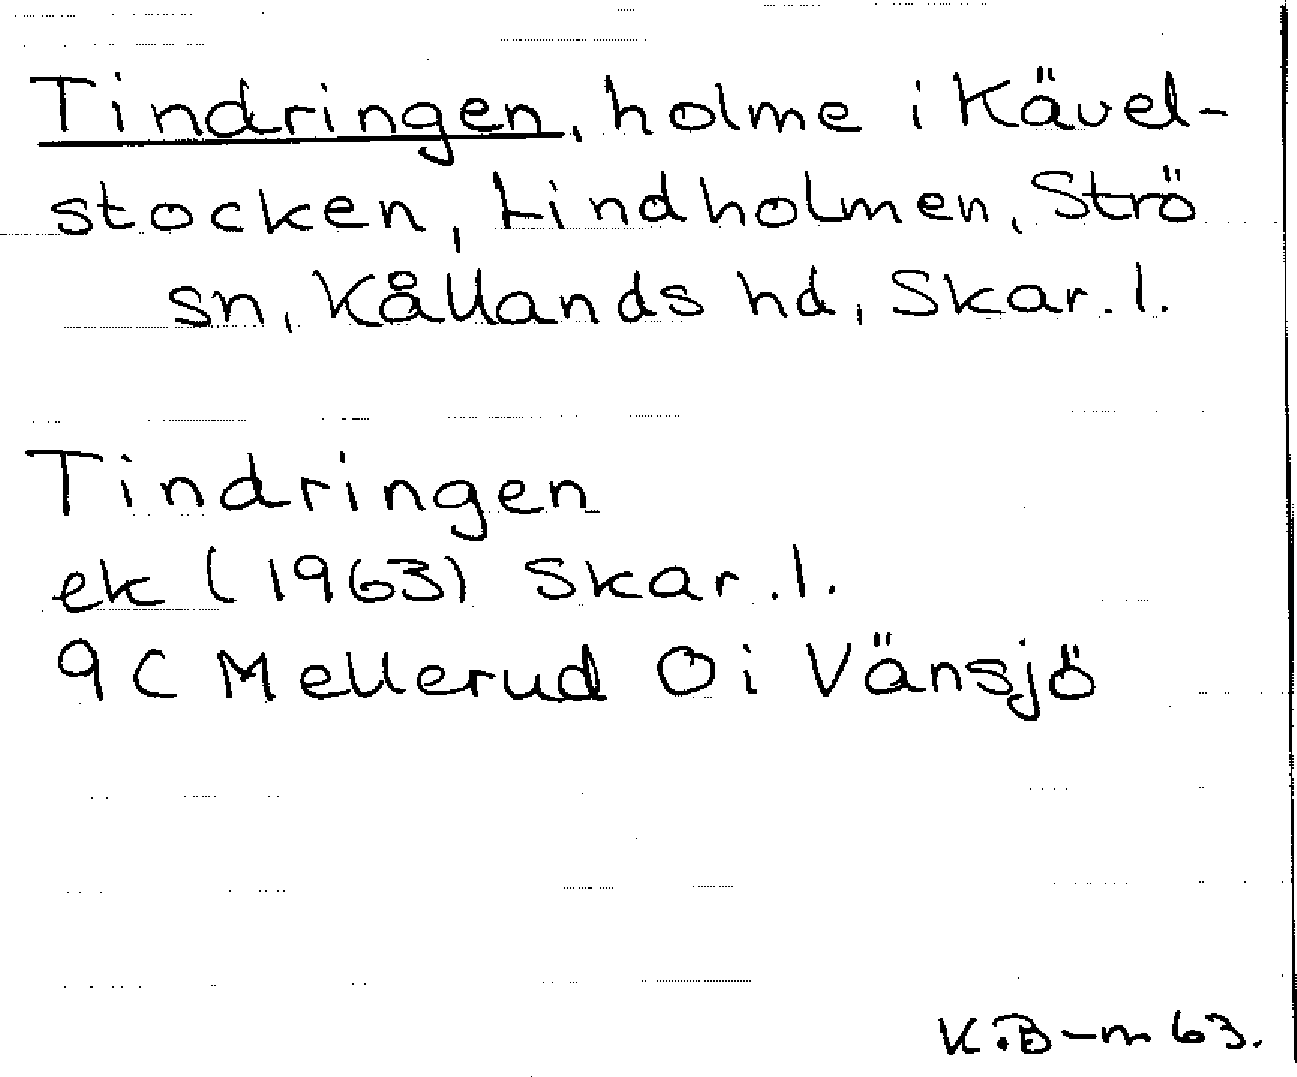 Tindringen, holme i Kävel-
stocken, Lindholmen, Strö
sn, Kållands hd, Skar. l.
Tindringen
ek (1963) Skar. l.
9C Mellerud Oi Vänsjö
K.B-m 63.